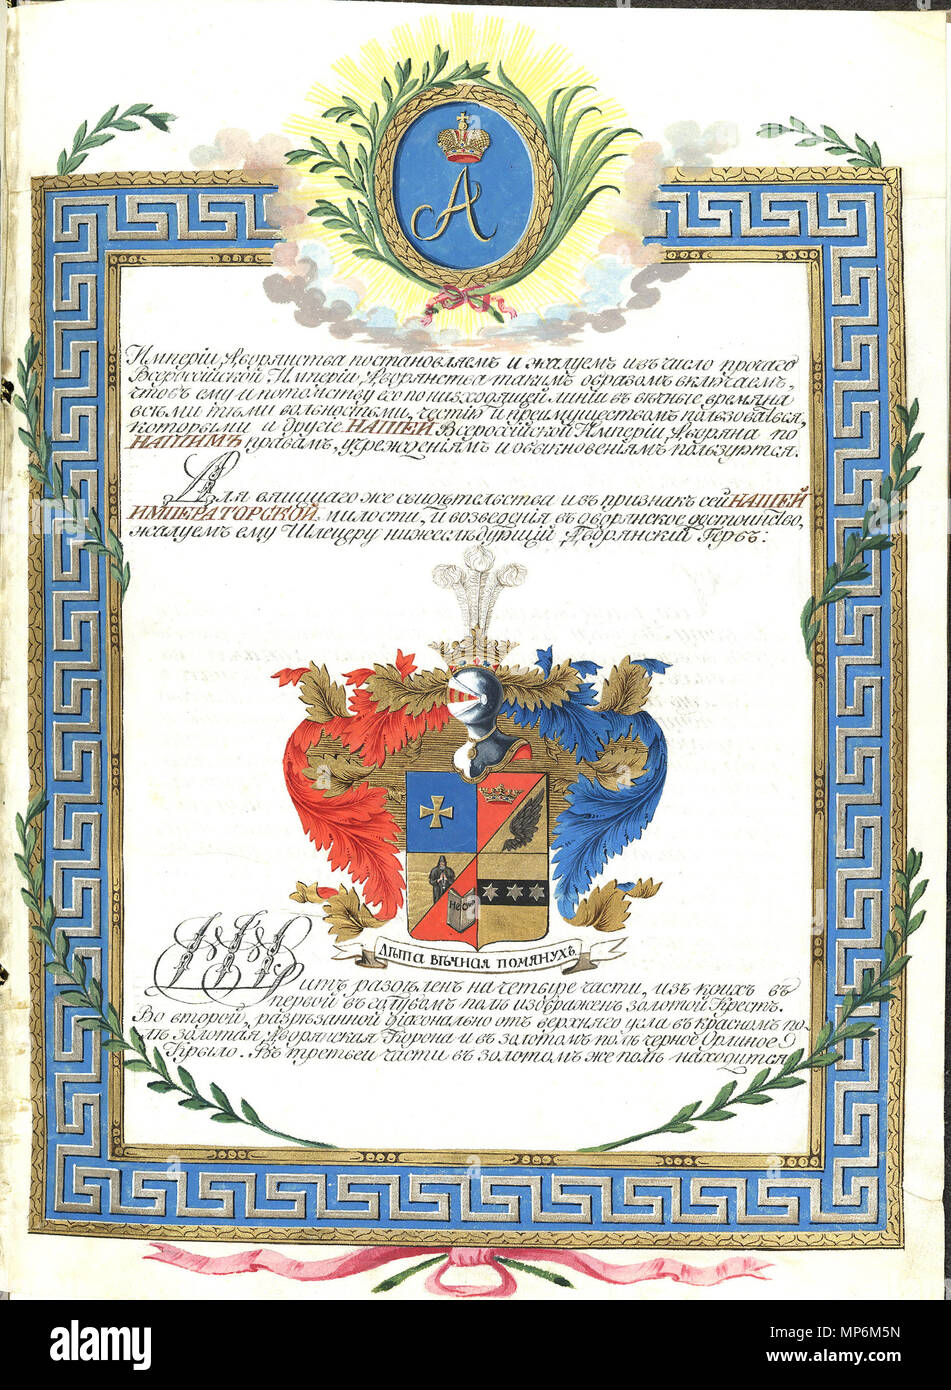 А
Имперіи Дворянства постановляемъ и жалуемъ и въ число прочаго
Всероссійской Имперіи Дворянства такимъ образомъ включаемъ,
что въ ему и потомству его по низходящей линіи въ вѣчные времяна
всѣми тѣми вольностьми, честію и преимуществомъ пользоваться,
которыми и другіе НАШЕЙ Всероссійской Имперіи Дворяна по
НАШИМЪ правамъ, учрежденіямъ и обыкновеніямъ пользуются.
Для вящшаго же свидѣтельства и въ признакъ сей НАШЕЙ
ИМПЕРАТОРСКОЙ милости, и возведенія въ дворянское достоинство,
жалуемъ ему Шлецеру нижеслѣдующій Дворянскій Гербъ:
ЛѢТА ВѢЧНАЯ ПОМЯНУХЪ
Щитъ раздѣленъ на четыре части, изъ коихъ въ
первой въ голубомъ полѣ изображенъ золотой Крестъ.
Во второй, разрѣзанной діагонально отъ верхняго угла въ красномъ по-
лѣ золотая Дворянская Корона и въ золотомъ полѣ черное Орлиное
Крыло. Въ третьей части въ золотомъ же полѣ находится
alamy
Image ID: MP6M5N
www.alamy.com